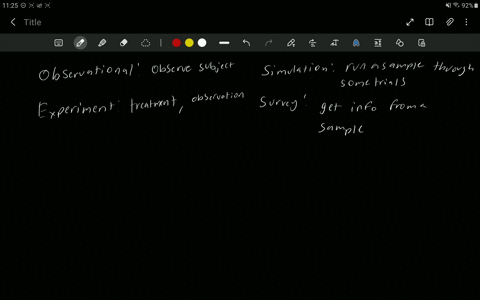 11:25
92%
Title
Observational: Observe subject
Simulation: run a sample through
some trials
Experiment: treatment, observation
Survey: get info from a
sample